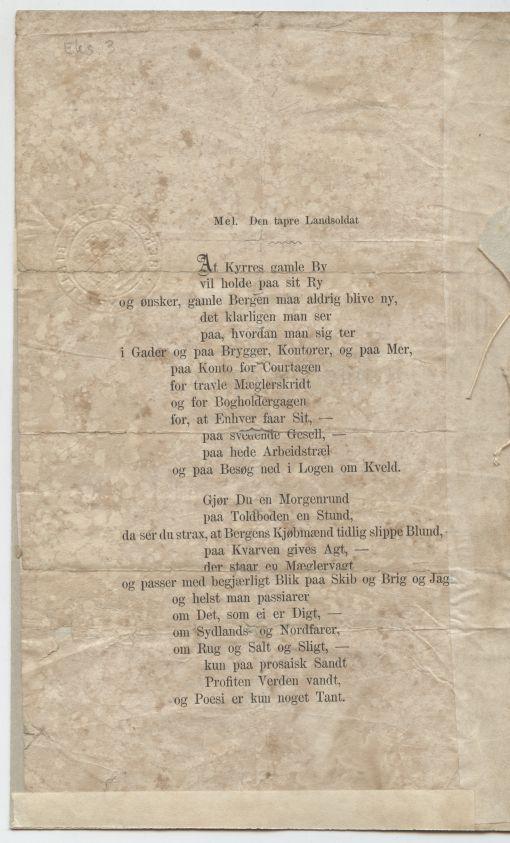 Eks 3
Mel. Den tapre Landsoldat
At Kyrres gamle By
vil holde paa sit Ry
og ønsker, gamle Bergen maa aldrig blive ny,
det klarligen man ser
paa, hvordan man sig ter
i Gader og paa Brygger, Kontorer, og paa Mer,
paa Konto for Courtagen
for travle Mæglerskridt
og for Bogholdergagen
for, at Enhver faar Sit, —
paa svedende Gesell, —
paa hede Arbeidstræl
og paa Besøg ned i Logen om Kveld.
Gjør Du en Morgenrund
paa Toldboden en Stund,
da ser du strax, at Bergens Kjøbmænd tidlig slippe Blund,
paa Kvarven gives Agt, —
der staar en Mæglervagt
og passer med begjærligt Blik paa Skib og Brig og Jagt
og helst man passiarer
om Det, som ei er Digt, —
om Sydlands- og Nordfarer,
om Rug og Salt og Sligt, —
kun paa prosaisk Sandt
Profiten Verden vandt,
og Poesi er kun noget Tant.